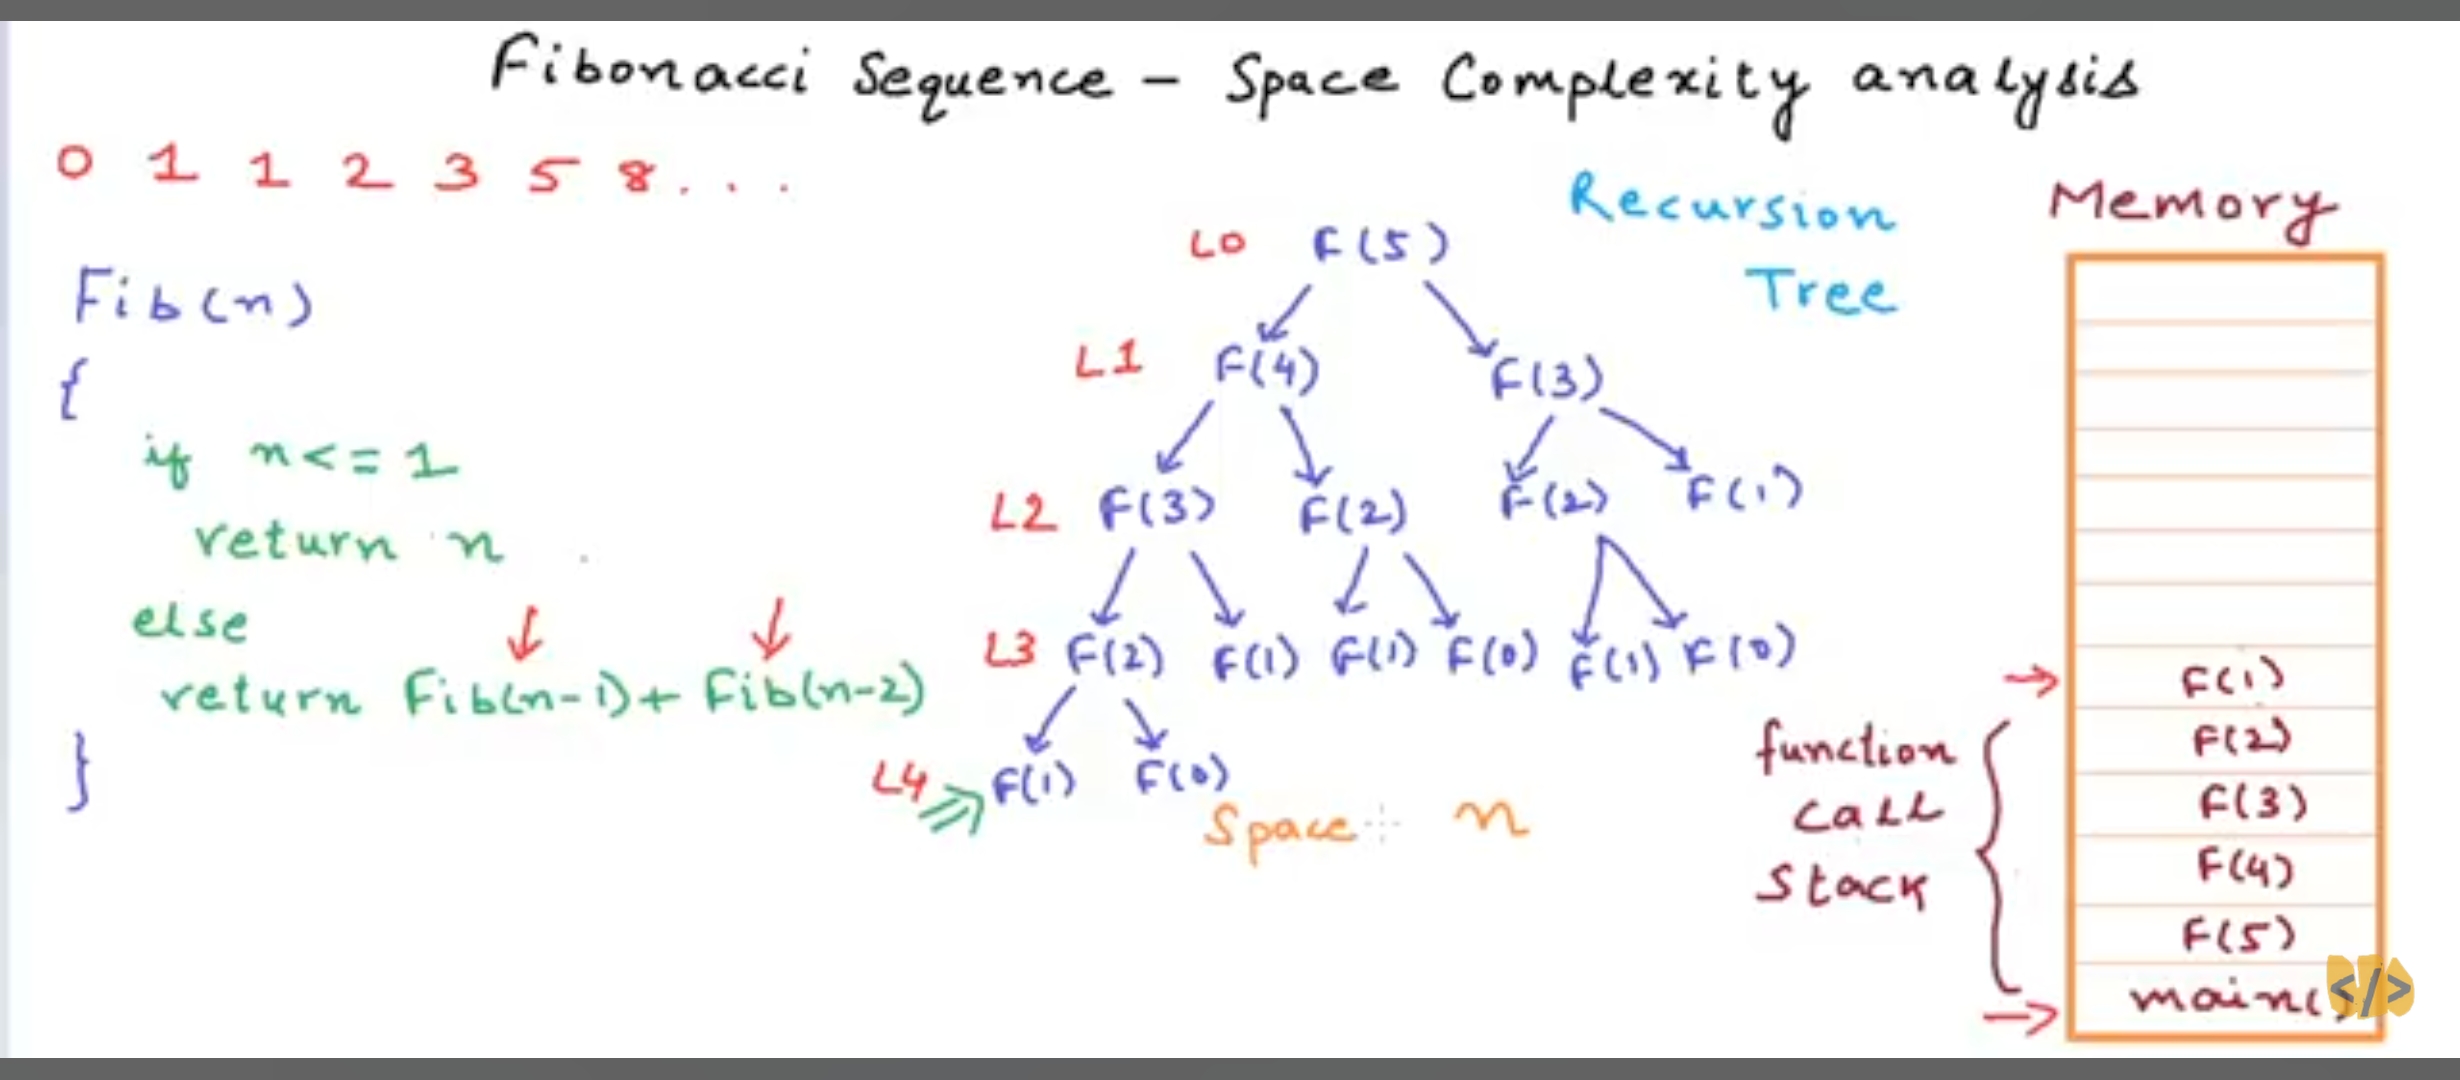 Fibonacci Sequence - Space Complexity analysis
0 1 1 2 3 5 8...
Fib(n)
{
if n<=1
return n
else
return Fib(n-1)+ Fib(n-2)
}
Recursion
Tree
L0 F(5)
L1 F(4) F(3)
L2 F(3) F(2) F(2) F(1)
L3 F(2) F(1) F(1) F(0) F(1) F(0)
L4 F(1) F(0)
Space n
Memory
F(1)
F(2)
F(3)
F(4)
F(5)
main()
function
call
stack
</>